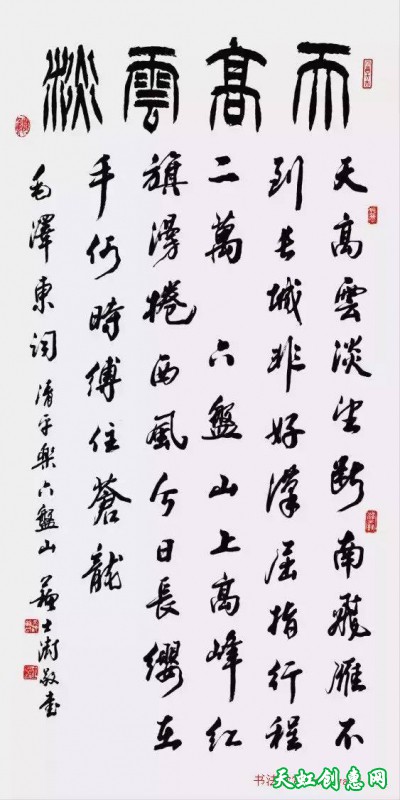 天高雲淡
天高雲淡望斷南飛雁不
到長城非好漢屈指行程
二萬 六盤山上高峰紅
旗漫捲西風今日長纓在
手何時縛住蒼龍
毛澤東詞 清平樂六盤山 蘇士澍敬書
书法
天虹创惠网